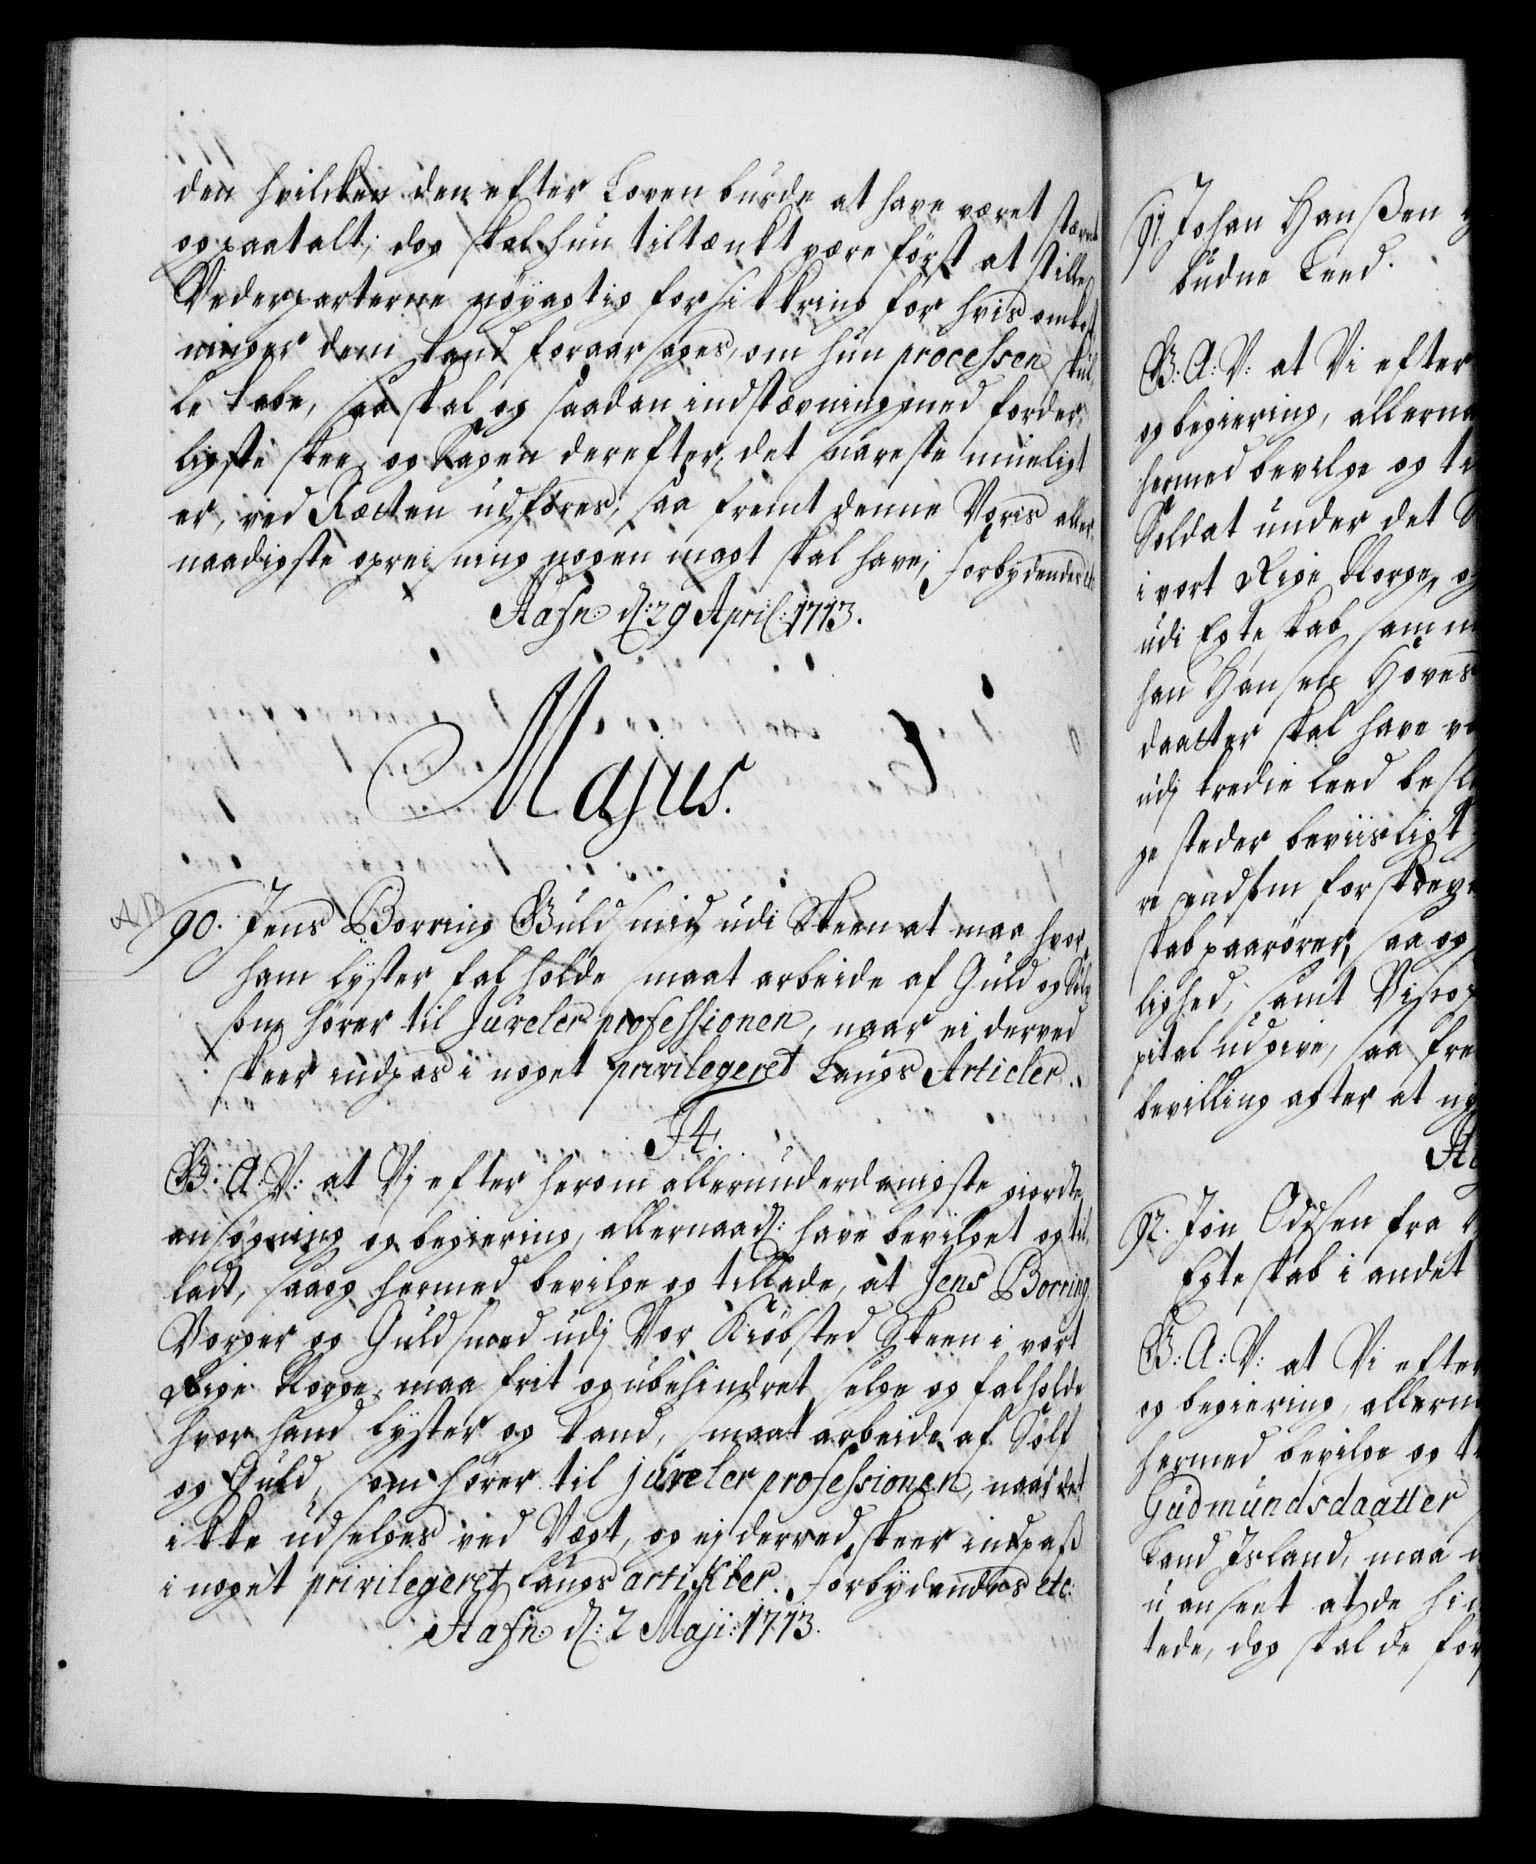 den hvilcken den efter Loven burde at have været stævnt
og paatalt; dog skal hun tiltænkt være först at stille
Vederparterne nöyagtig forsikkring for hvis omkost¬
ninger dem kand foraarsages, om hun processen skul¬
le tabe, saa skal og saadan indstævning med forder¬
ligste skee, og Sagen derefter, det snareste mueligt
er, ved Rætten udföres, saa fremt denne Voris aller¬
naadigste opreisning nogen magt skal have; forbydendes etc
Hafn: d: 29 April: 1713.
Majus.
90. Jens Borring Guldsmid udi Skeen at maa hvor
ham lyster fal holde smaat arbeide af Guld og Sölv
som hörer til Jüveler professionen, naar ei derved
skeer indpas i noget privilegeret Laugs Articler.
F4.
G: A: V: at Vi efter herom allerunderdanigste giordte
ansögning og begiering, allernaad: have bevilget og til¬
ladt, saa og hermed bevilge og tillade, at Jens Borring
Borger og Guldsmed udi Vor Kiöbsted Skeen i vort
Rige Norge, maa frit og ubehindret selge og falholde
hvor hand lyster og kand, smaat arbeide af Sölf
og Guld, som hörer til jüveler professionen, naar det
ikke udselges ved Vegt, og ej derved skeer indpaß
i noget privilegeret Laugs artikler. forbydendes etc:
Hafn: d: 2 Maji: 1713.
91. Johan Hanßen
budne Leed.
G: A: V: at Vi efter
og begiering, allerna
hermed bevilge og ti
Soldat under det
i vort Rige Norge, og
udi Egteskab samm
han Hansen Höves
daatter skal have væ
udi tredie leed besl
ge steder beviisligt
re endsom forskreve
skab paarörer, saa og
lighed, samt
pital udgive, saa fre
bevilling agter at ny
Ha
92. Jon Odsen fra
Egteskab i andet
G: A: V: at Vi efter
og begiering, allerna
hermed bevilge og ti
Gudmundsdaatter
Land Island, maa
uanseet at de hi
tede, dog skal de för